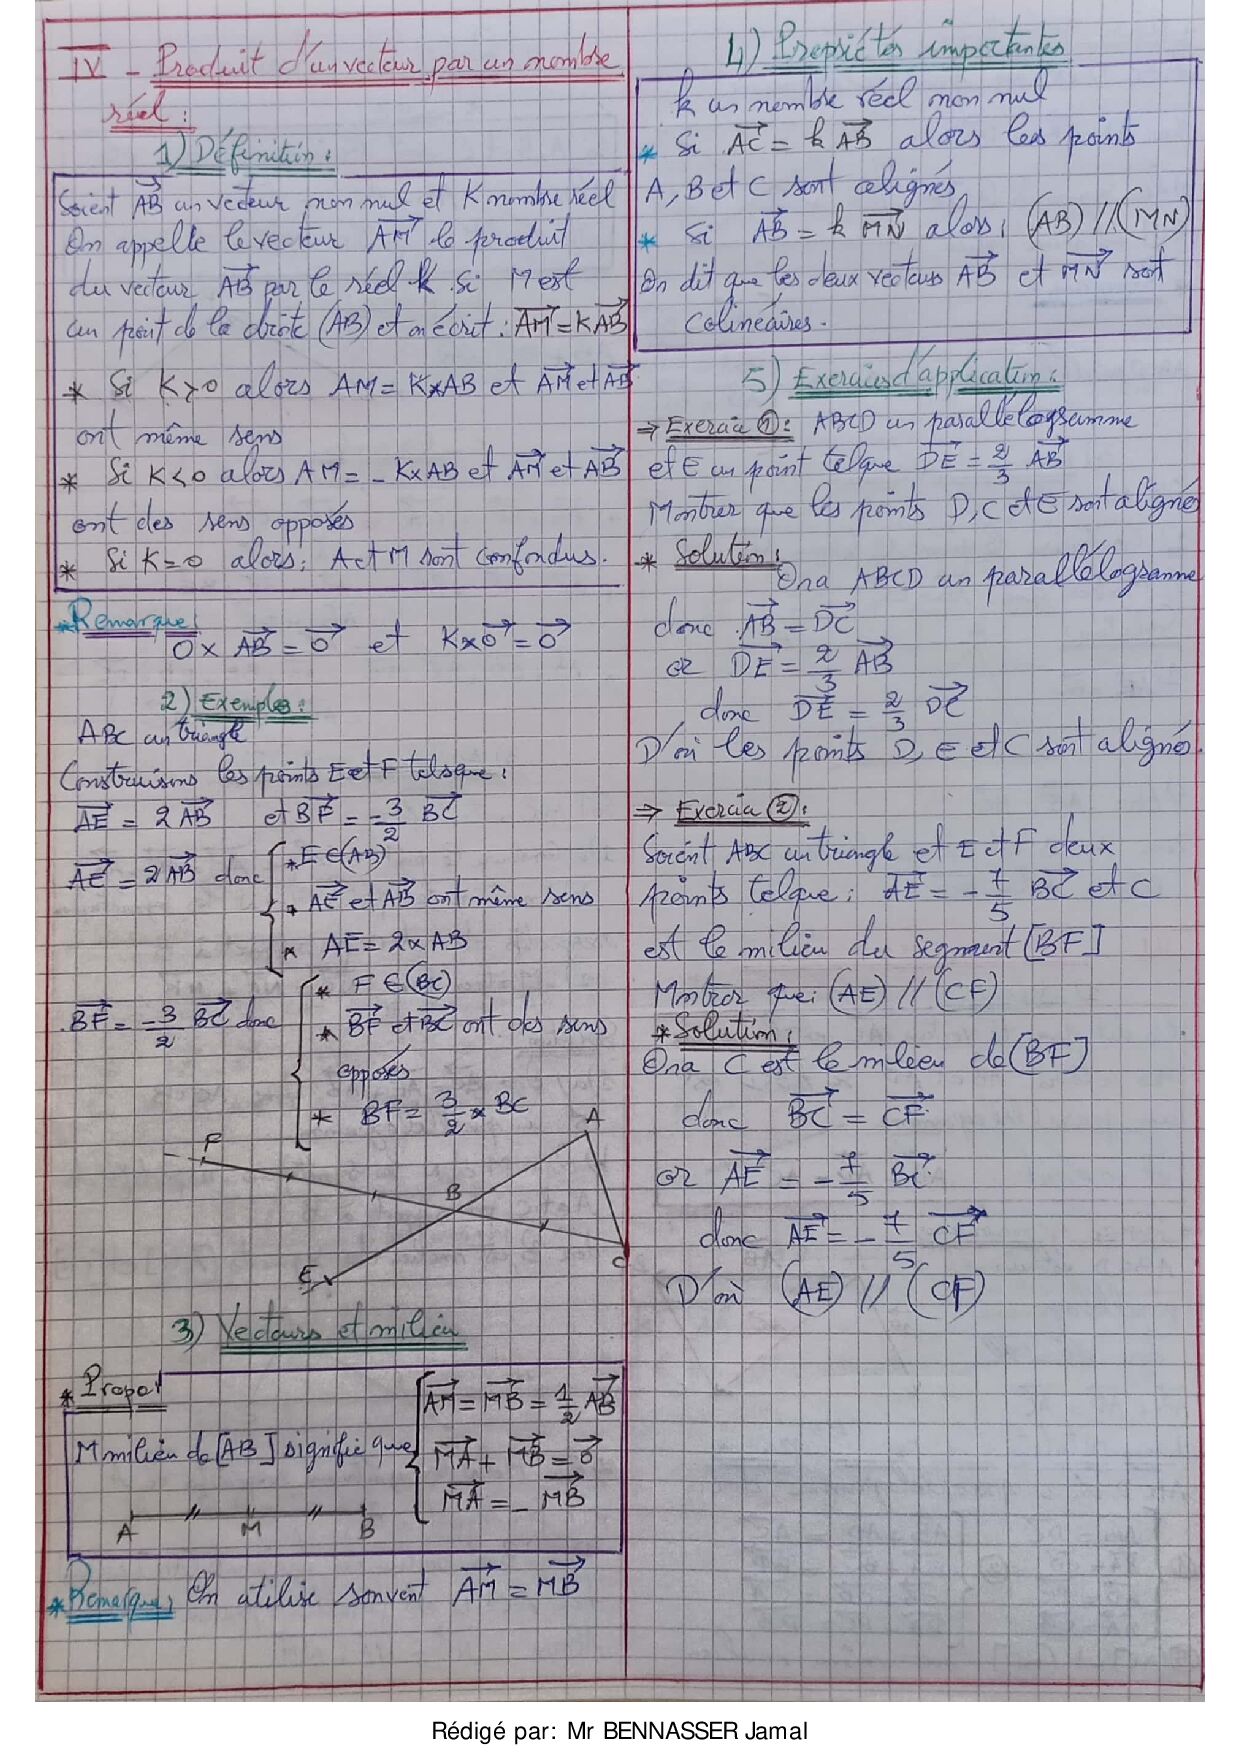 IV - Produit d'un vecteur par un nombre
réel :
1) Définition :
Soient AB⃗ un vecteur non nul et K nombre réel
On appelle le vecteur AM⃗ le produit
du vecteur AB⃗ par le réel K si M est
un point de la droite (AB) et on écrit : AM⃗ = K AB⃗
* Si K > 0 alors AM = K × AB et AM⃗ et AB⃗
ont même sens
* Si K < 0 alors AM = - K × AB et AM⃗ et AB⃗
ont des sens opposés
* Si K = 0 alors : A et M sont confondus.
* Remarque :
0 × AB⃗ = 0⃗ et K × 0⃗ = 0⃗
2) Exemples :
ABC un triangle
Construisons les points E et F tels que :
AE⃗ = 2 AB⃗ et BF⃗ = -3/2 BC⃗
AE⃗ = 2 AB⃗ donc { * E ∈ (AB)
* AE⃗ et AB⃗ ont même sens
* AE = 2 × AB
BF⃗ = -3/2 BC⃗ donc { * F ∈ (BC)
* BF⃗ et BC⃗ ont des sens
opposés
* BF = 3/2 × BC
A
F
B
C
E
3) Vecteurs et milieu
* Propot
M milieu de [AB] signifie que { AM⃗ = MB⃗ = 1/2 AB⃗
MA⃗ + MB⃗ = 0⃗
MA⃗ = - MB⃗
A M B
* Remarque : On utilise souvent AM⃗ = MB⃗
4) Propriétés importantes
k un nombre réel non nul
* Si AC⃗ = k AB⃗ alors les points
A, B et C sont alignés
* Si AB⃗ = k MN⃗ alors : (AB) // (MN)
On dit que les deux vecteurs AB⃗ et MN⃗ sont
colinéaires.
5) Exercices d'application :
⇒ Exercice 1 : ABCD un parallélogramme
et E un point tel que DE⃗ = 2/3 AB⃗
Montrer que les points D, C et E sont alignés
* Solution :
On a ABCD un parallélogramme
donc AB⃗ = DC⃗
or DE⃗ = 2/3 AB⃗
donc DE⃗ = 2/3 DC⃗
D'où les points D, E et C sont alignés.
⇒ Exercice 2 :
Soient ABC un triangle et E et F deux
points tel que : AE⃗ = - 7/5 BC⃗ et C
est le milieu du segment [BF]
Montrer que : (AE) // (CF)
* Solution :
On a C est le milieu de [BF]
donc BC⃗ = CF⃗
or AE⃗ = - 7/5 BC⃗
donc AE⃗ = - 7/5 CF⃗
D'où (AE) // (CF)
Rédigé par: Mr BENNASSER Jamal